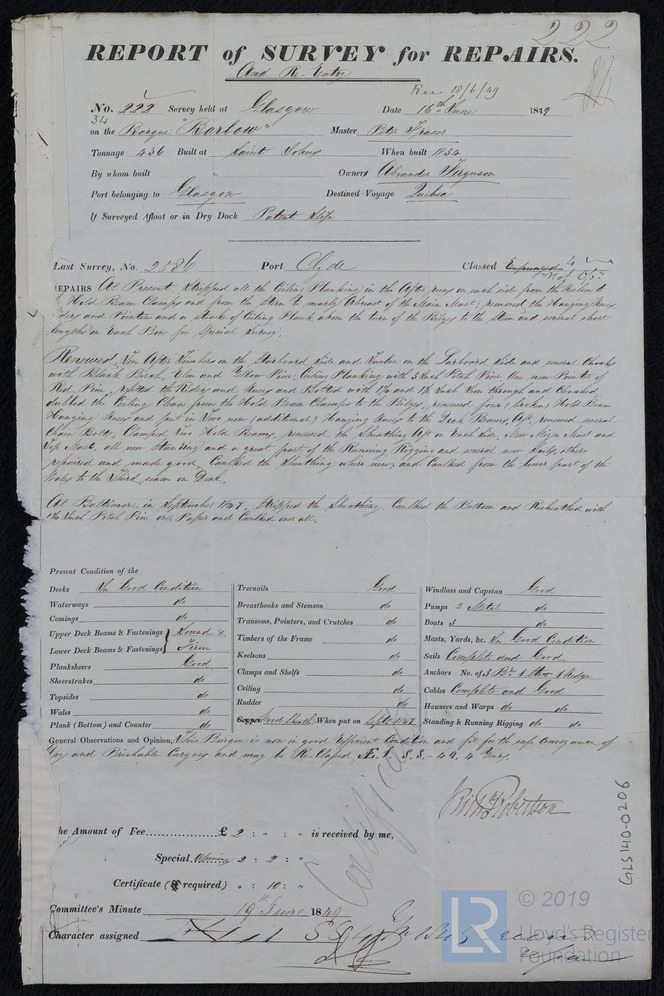 222
REPORT of SURVEY for REPAIRS.
And R. Entry
Rec 18/6/49
No. 222 Survey held at Glasgow Date 16th June 1849
34
on the Barque "Barlow" Master Peter Fraser
Tonnage 436 Built at Saint Johns When built 1834
By whom built Owner Alexander Ferguson
Port belonging to Glasgow Destined Voyage Quebec
If Surveyed Afloat or in Dry Dock Patent Slip
Last Survey, No. 2586 Port Clyde Classed Expunged
REPAIRS At Present, Stripped all the Ceiling Planking in the After on each side from the
Hold Beam Clamps and from the Stern to nearly Abreast of the Main Mast, removed the Hanging Knees
Riders and Pointer and a strake of Ceiling Plank above the turn of the Bilge to the Stem and several short
lengths on Each Bow for Special Survey.
Renewed, Ten After Timbers on the Starboard Side and on the Larboard Side and several Chocks
with Black Birch, Elm and Yellow Pine, Ceiling Planking with 3 Inch Pitch Pine One new Pointer of
Red Pine, refitted the Riders and Knees and Bolted with 1⅛ and 1¼ Inch Iron through and Clenched
doubled the Ceiling Clean from the Hold Beam Clamps to the Bilge, renewed four (broken) Hold Beam
Hanging Knees and put in Two new (additional) Hanging Knees to the Deck Beams, Aft, renewed several
Chain Bolts, Clamped Two Hold Beams, renewed the Sheathing Aft on Each side, New Mizen Mast and
Top Mast, all new Standing and a great part of the Running Rigging and several new Sails, others
repaired and made good, Caulked the Sheathing where new, and Caulked from the lower part of the
Wales to the Third seam on Deck.
At Baltimore in September 1847, Stripped the Sheathing, Caulked the Bottom and Resheathed with
Inch Pitch Pine over Paper and Caulked over all.
Present Condition of the
Decks In Good Condition
Waterways do
Comings do
Upper Deck Beams & Fastenings } Sound &
Lower Deck Beams & Fastenings } Firm
Planksheers Good
Sheerstrakes do
Topsides do
Wales do
Plank (Bottom) and Counter do
Treenails Good
Breasthooks and Stemson do
Transoms, Pointers, and Crutches do
Timbers of the Frame do
Keelsons do
Clamps and Shelfs do
Ceiling do
Rudder do
Copper Wood Sheathg When put on Septr 1847
Windlass and Capstan Good
Pumps 2 Metal do
Boats 3 do
Masts, Yards, &c. In Good Condition
Sails Complete and Good
Anchors No. of 3 Br. 1 Stream 1 Kedge
Cables Complete and Good
Hausers and Warps do do
Standing & Running Rigging do do
General Observations and Opinion, This Barque is now in good Efficient Condition and fit for the safe Conveyance of
Dry and Perishable Cargoes and may be R. Classed Æ. 1. S.S.-49. 4 Years.
Certificate
Robertson
The Amount of Fee............... £ 2 : „ : „ is received by me,
Special 2 : 2 : „
Certificate (if required) „ : 10 : „
Committee's Minute 19th June 1849
Character assigned
GLS140-0206
© 2019
LR
Lloyd's Register
Foundation